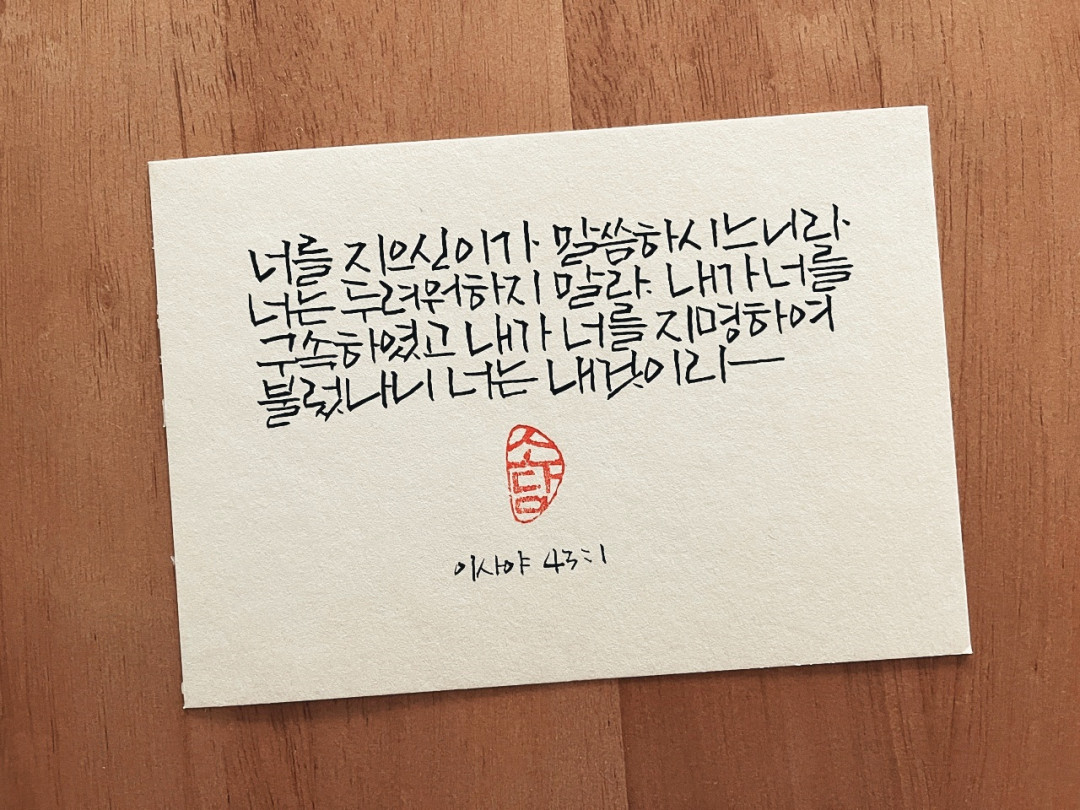 너를 지으신이가 말씀하시느니라
너는 두려워하지 말라. 내가 너를
구속하였고 내가 너를 지명하여
불렀나니 너는 내것이라
소담
이사야 43:1